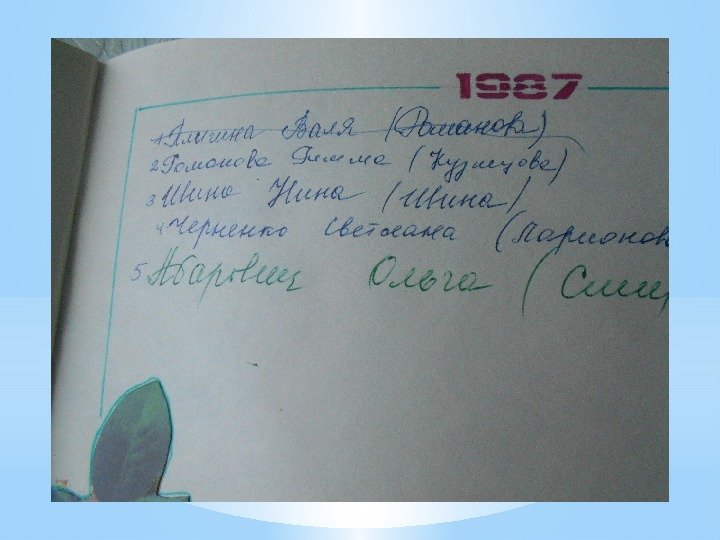 1987
1. Алигина Валя (Романова)
2 Романова Римма (Кузнецова)
3 Шина Нина (Шина)
4 Черненко Светлана (Ларионов
5 Абарович Ольга (Синц